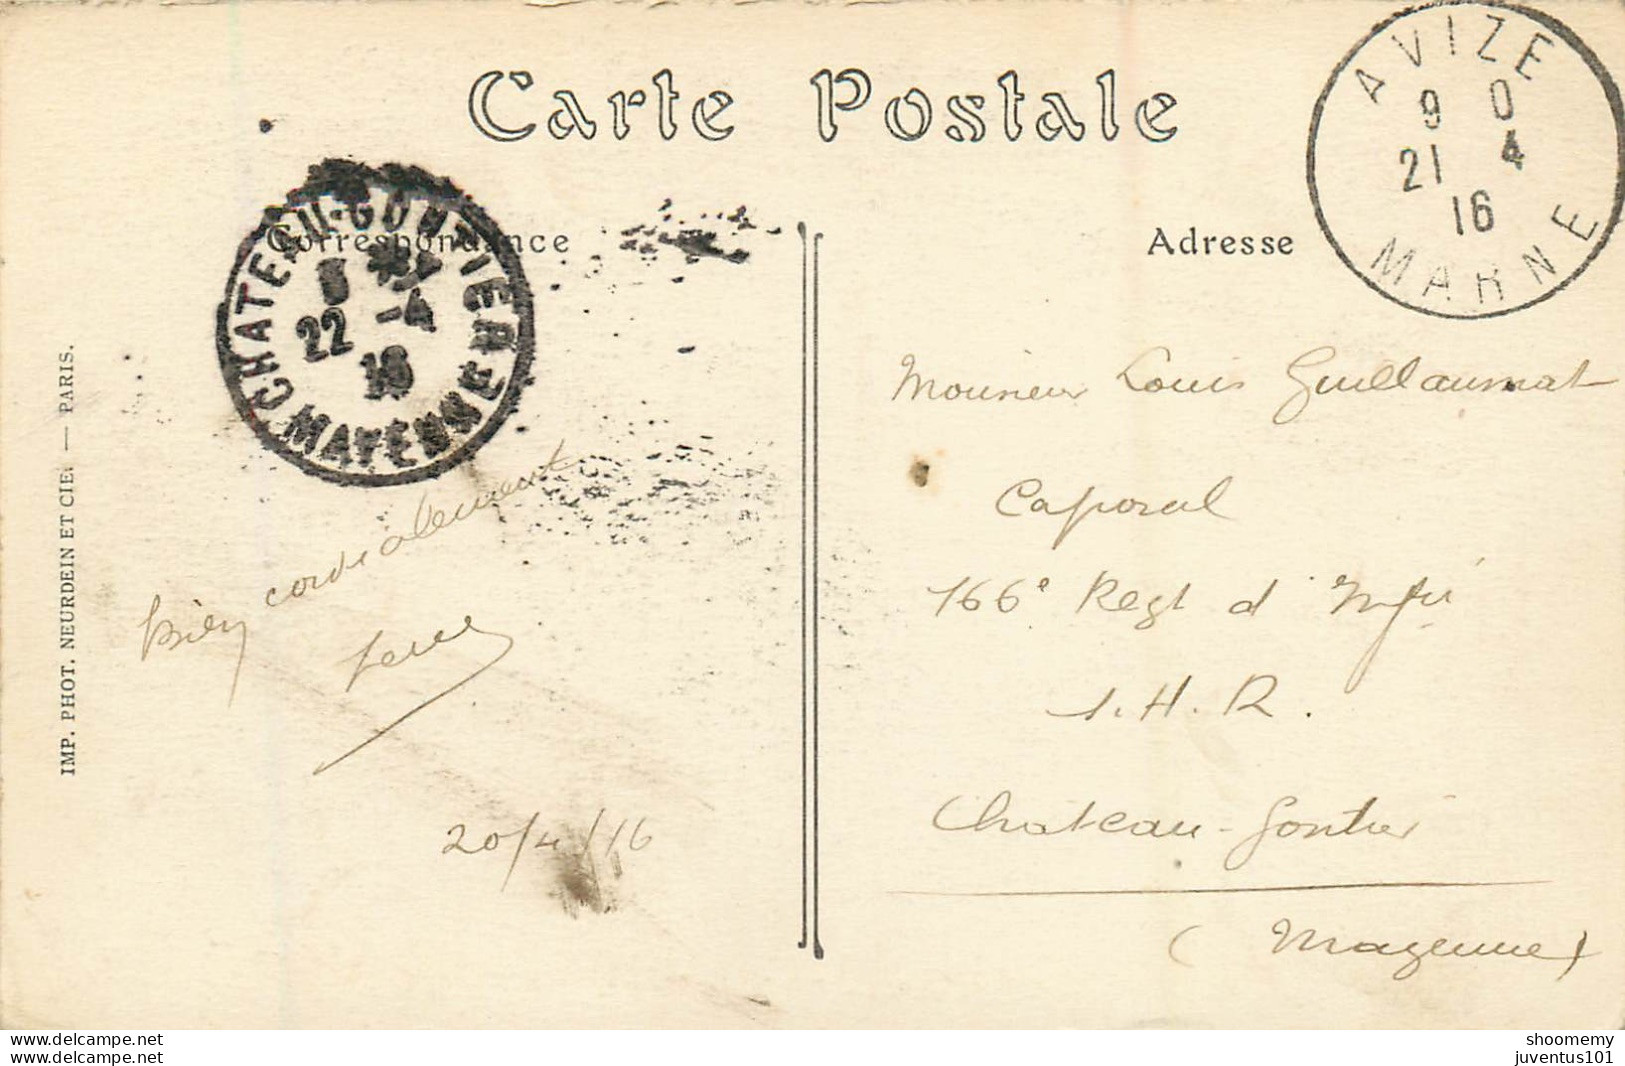 Carte Postale
AVIZE
9 0
21 4
16
MARNE
CHATEAU-GONTIER
22 -4
16
MAYENNE
Correspondance
Adresse
Monsieur Louis Guillaumat
Caporal
166e Regt d'Infie
S.H.R.
Chateau-Gontier
(Mayenne)
bien cordialement
20/4/16
IMP. PHOT. NEURDEIN ET CIE. — PARIS.
www.delcampe.net
www.delcampe.net
shoomemy
juventus101